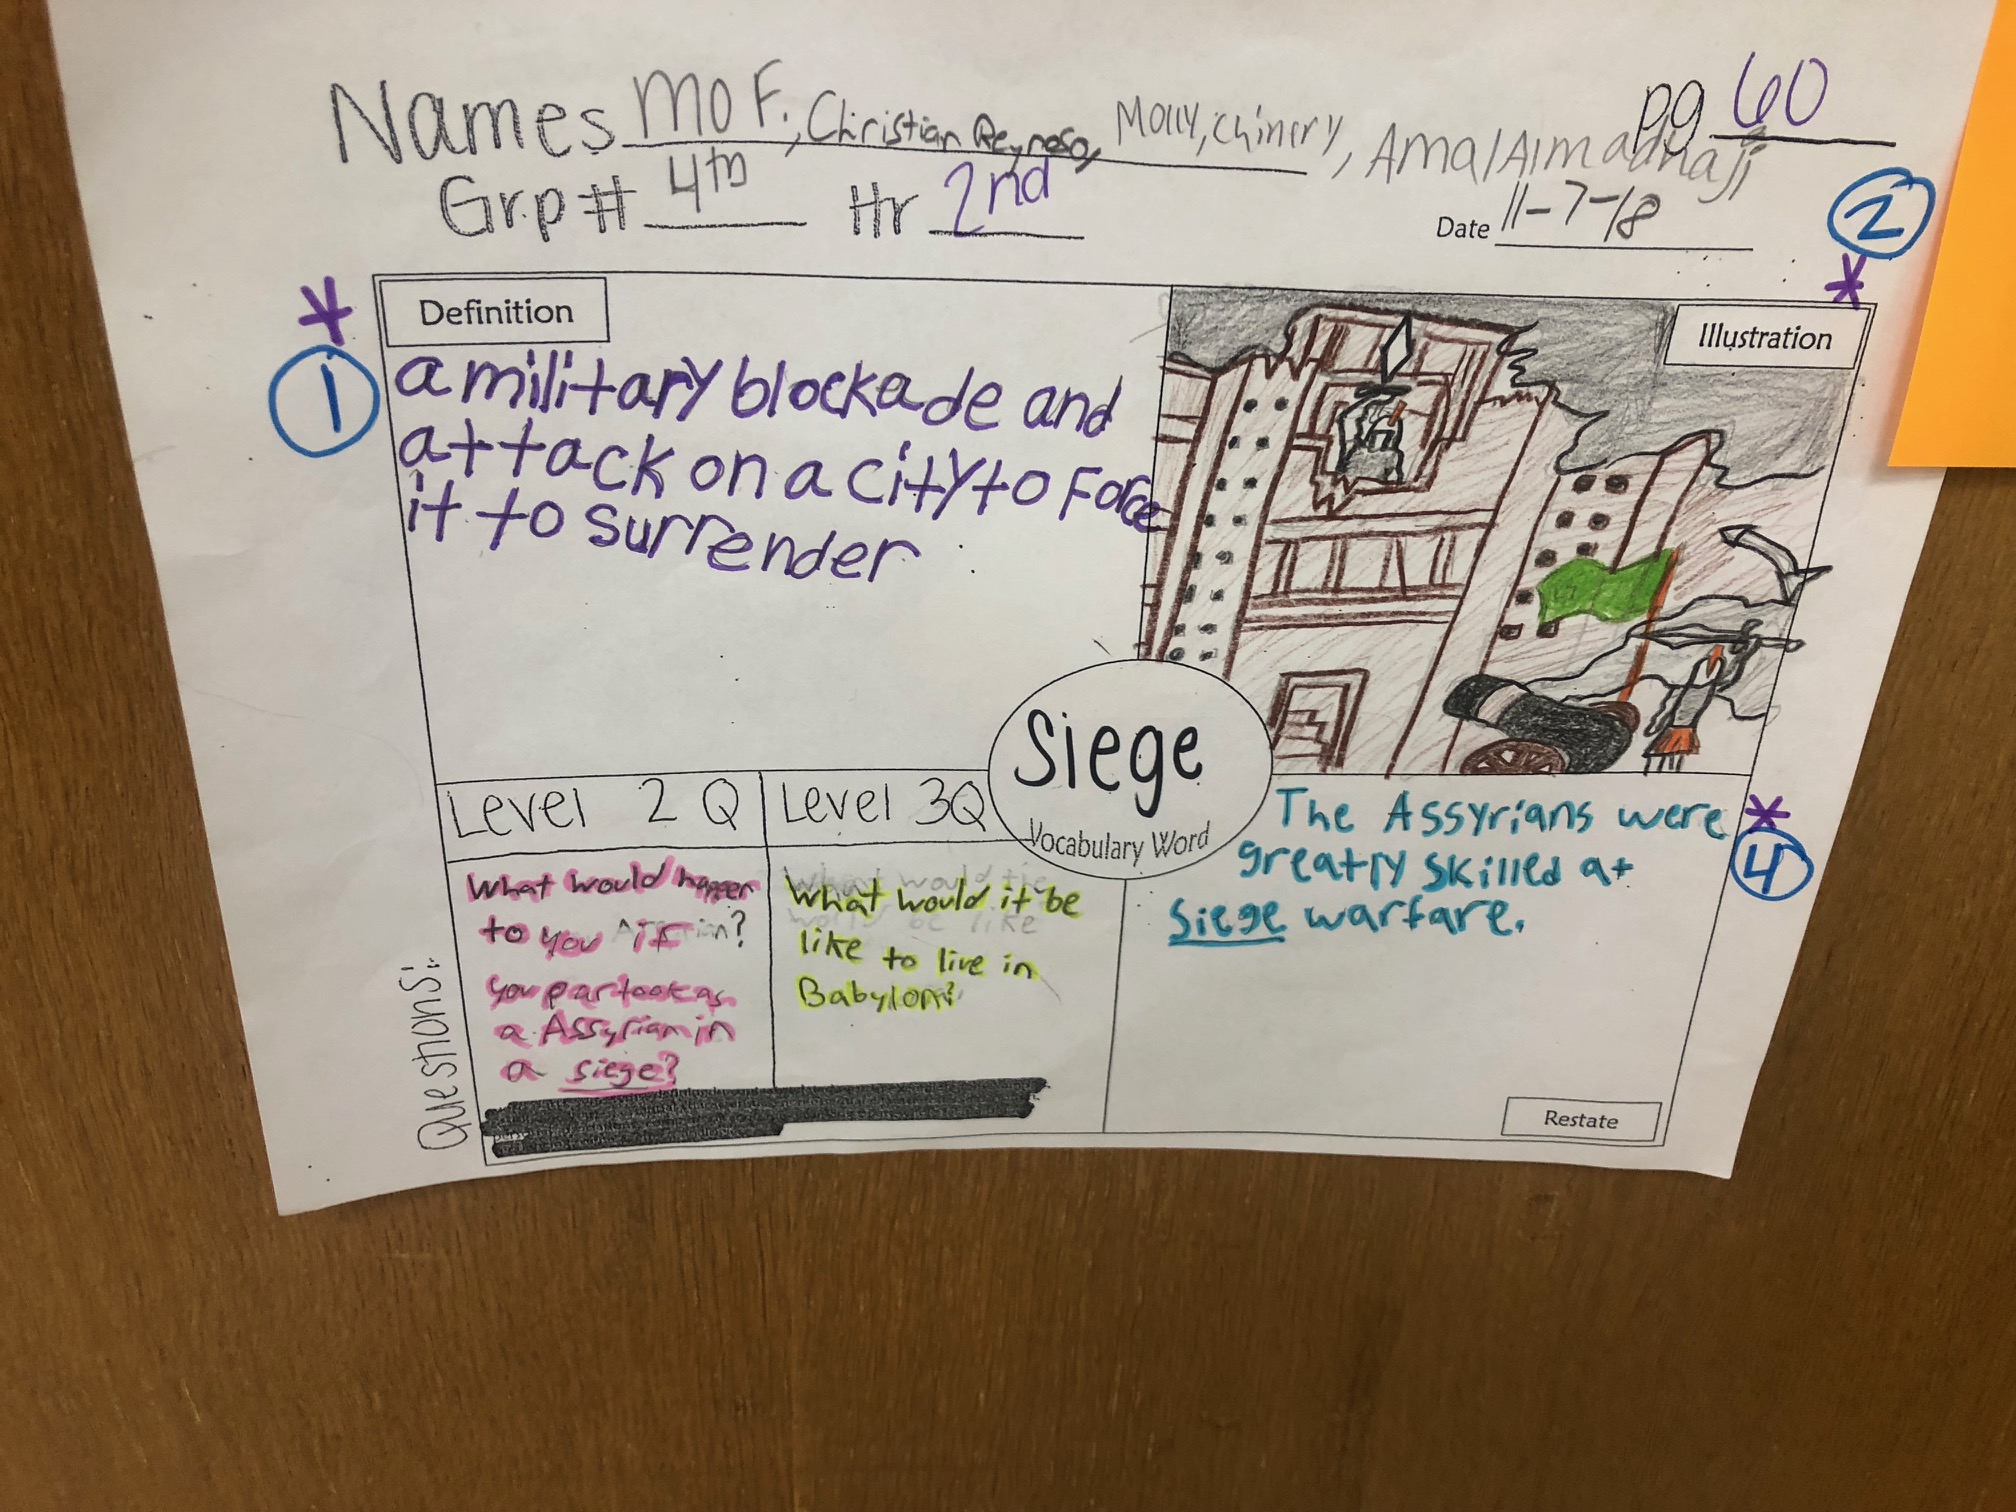 Names Mo F., Christian Reynoso, Molly, Chinery, Amal Almadhaji pg 60
Grp# 4th Hr 2nd
Date 11-7-18
2
1
Definition
a military blockade and
attack on a city to Force
it to surrender
Illustration
Siege
Vocabulary Word
Questions:
Level 2 Q
What would happen
to you if
you partook as
a Assyrian in
a siege?
Level 3Q
What would it be
like to live in
Babylon?
4
The Assyrians were
greatly skilled at
siege warfare.
Restate